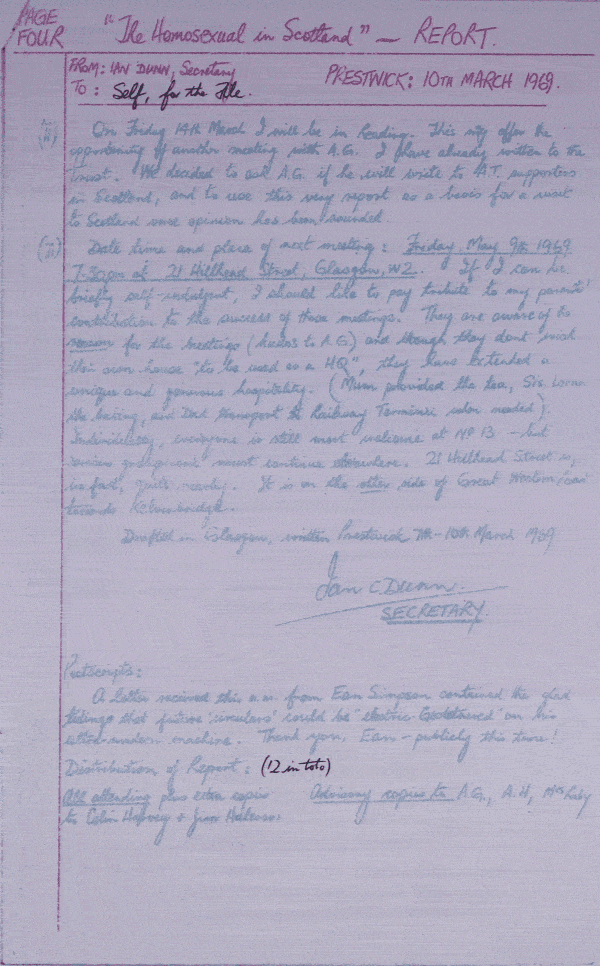 PAGE FOUR
"The Homosexual in Scotland" – REPORT.
FROM: IAN DUNN, Secretary
TO: Self, for the File.
PRESTWICK: 10TH MARCH 1969.
On Friday 14th March I will be in Reading. This may offer the
opportunity of another meeting with A.G. I have already written to the
Trust. We decided to ask A.G. if he will write to A.T. supporters
in Scotland, and to use this very report as a basis for a visit
to Scotland once opinion has been sounded.
Date time and place of next meeting: Friday May 9th 1969
7-30pm at 21 Hillhead Street, Glasgow, W2. If I can be
briefly self-indulgent, I should like to pay tribute to my parents'
contribution to the success of these meetings. They are aware of the
reason for the meetings (thanks to A.G) and though they dont wish
their own house "to be used as a HQ", they have extended a
unique and generous hospitality. (Mum provided the tea, Sis. Lorna
the baking, and Dad transport to Railway Termini when needed).
Individually, everyone is still most welcome at Nº 13 – but
must continue elsewhere. 21 Hillhead Street is,
in fact, quite nearby. It is on the other side of Great Western Road
towards Kelvinbridge.
Drafted in Glasgow, written Prestwick 7th – 10th March 1969
Ian C. Dunn.
SECRETARY.
Postscripts:
A letter received this a.m. from Ean Simpson contained the glad
tidings that future 'circulars' could be 'electric- on his
ultra-modern machine. Thank you, Ean – publicly this time!
Distribution of Report: (12 in toto)
All attending plus extra copies
to Colin Harvey + Jim
Advisory copies to A.G., A.H, Mrs